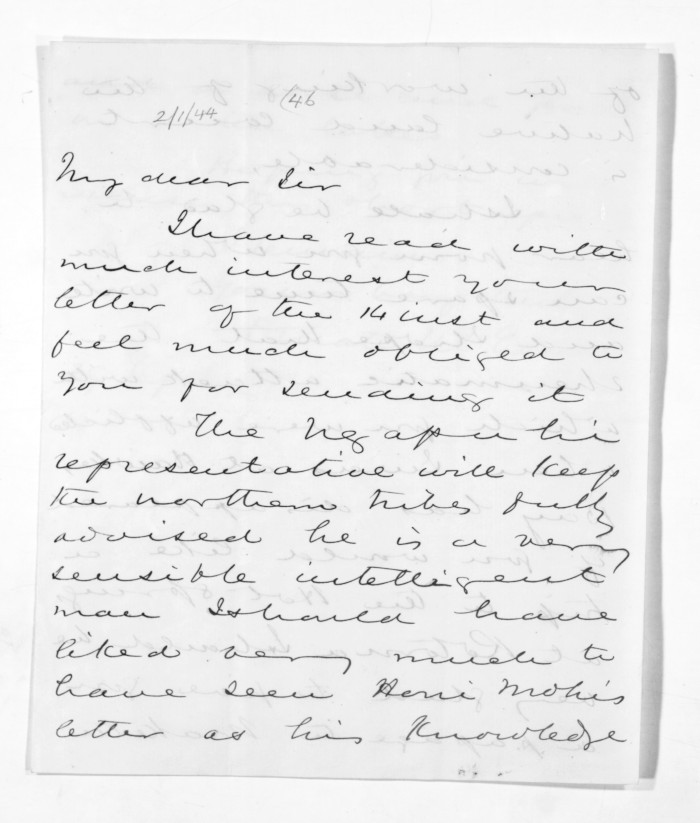 2/1/44 (46
My dear Sir
I have read with
much interest your
letter of the 14 inst and
feel much obliged to
you for sending it
The Ngapuhi
representative will keep
the northern tribes fully
advised he is a very
sensible intelligent
man I should have
liked very much to
have seen Honi Mohis
letter as his Knowledge